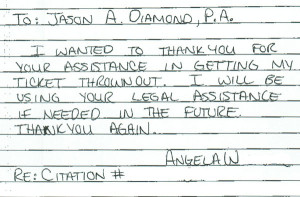 TO: JASON A. DIAMOND, P.A.
I WANTED TO THANK YOU FOR
YOUR ASSISTANCE IN GETTING MY
TICKET THROWN OUT. I WILL BE
USING YOUR LEGAL ASSISTANCE
IF NEEDED IN THE FUTURE.
THANK YOU AGAIN.
ANGELA W
RE: CITATION #